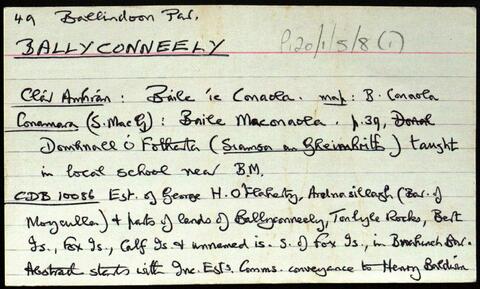 49 Ballindoon Par.
BALLYCONNEELY P120/1/5/8(1)
Clár Amhrán : Baile 'ic Conaola. map: B. Conaola
Conamara (S. Mac G) : Baile Maconaola. p.39, Donal
Domhnall Ó Fotharta (Siamsa an Gheimhridh) taught
in local school near B.M.
CDB 10086 Est. of George H. O'Flaherty, Ardnasillagh (Bar. of
Moycullen) & parts of lands of Ballyconneely, Tonkyle Rocks, Bert
Is., Fox Is., Calf Is & unnamed is. S. of Fox Is., in Bar.
Abstract starts with Inc. Ests. Comms. conveyance to Henry